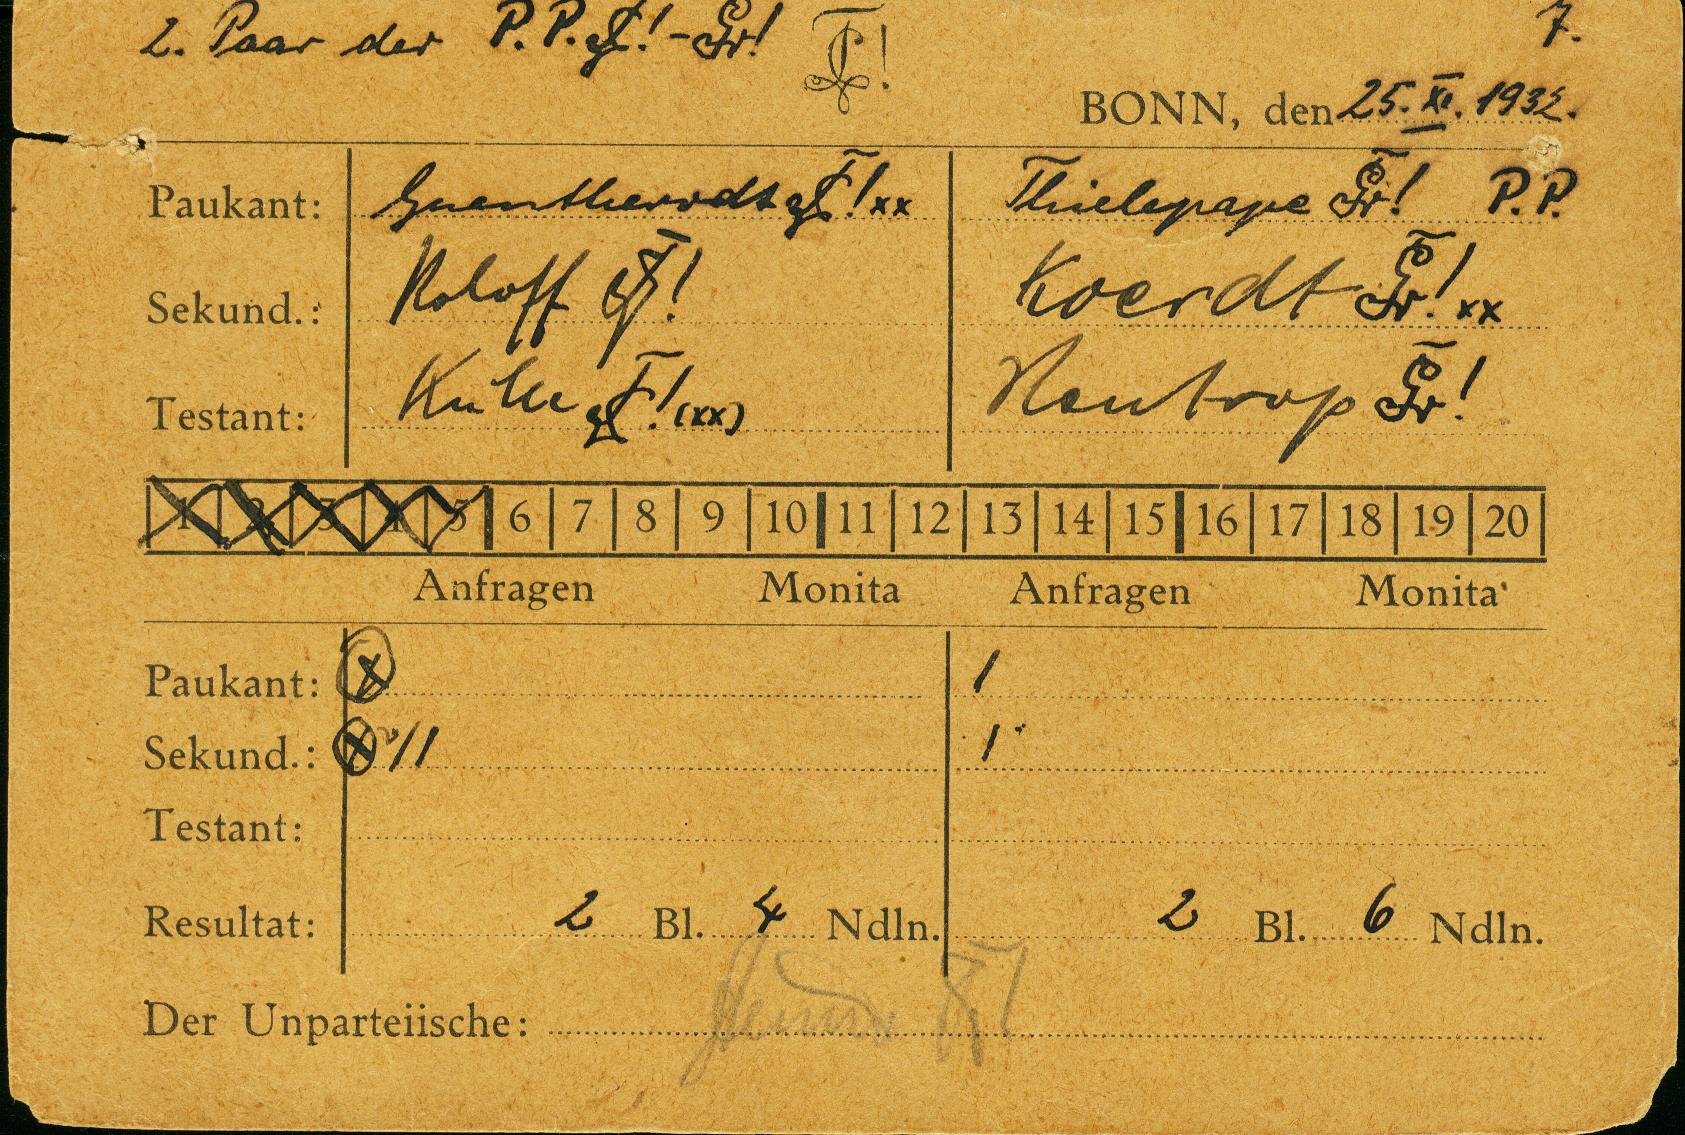 2. Paar der P.P. - 7.
BONN, den 25. XI. 1932.
Paukant: xx Thielepape P.P.
Sekund.: Roloff ! Koerdt ! xx
Testant: ! (xx) !
1 2 3 4 5 6 7 8 9 10 11 12 13 14 15 16 17 18 19 20
Anfragen Monita Anfragen Monita
Paukant: X /
Sekund.: X // /
Testant:
Resultat: 2 Bl. 4 Ndln. 2 Bl. 6 Ndln.
Der Unparteiische: